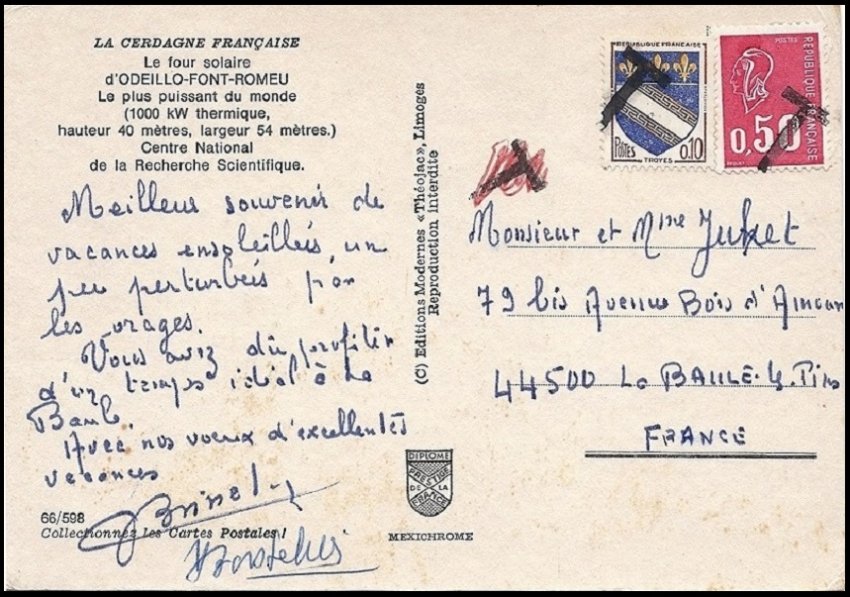 LA CERDAGNE FRANÇAISE
Le four solaire
d'ODEILLO-FONT-ROMEU
Le plus puissant du monde
(1000 kW thermique,
hauteur 40 mètres, largeur 54 mètres.)
Centre National
de la Recherche Scientifique.
Meilleur souvenir de
vacances ensoleillés, un
peu perturbés par
les orages.
Vous avez dû profiter
d'un temps idéal à La
Baule.
Avec nos voeux d'excellentes
vacances
66/598
Collectionnez les Cartes Postales !
(C) Editions Modernes «Théojac», Limoges
Reproduction interdite
DIPLOME
PRESTIGE
DE LA
FRANCE
MEXICHROME
REPUBLIQUE FRANÇAISE
POSTES
0,10
TROYES
REPUBLIQUE FRANÇAISE
0,50
T
T
T
Monsieur et Mme
79 bis Avenue Bois d'Amour
44500 La BAULE-Ls Pins
FRANCE